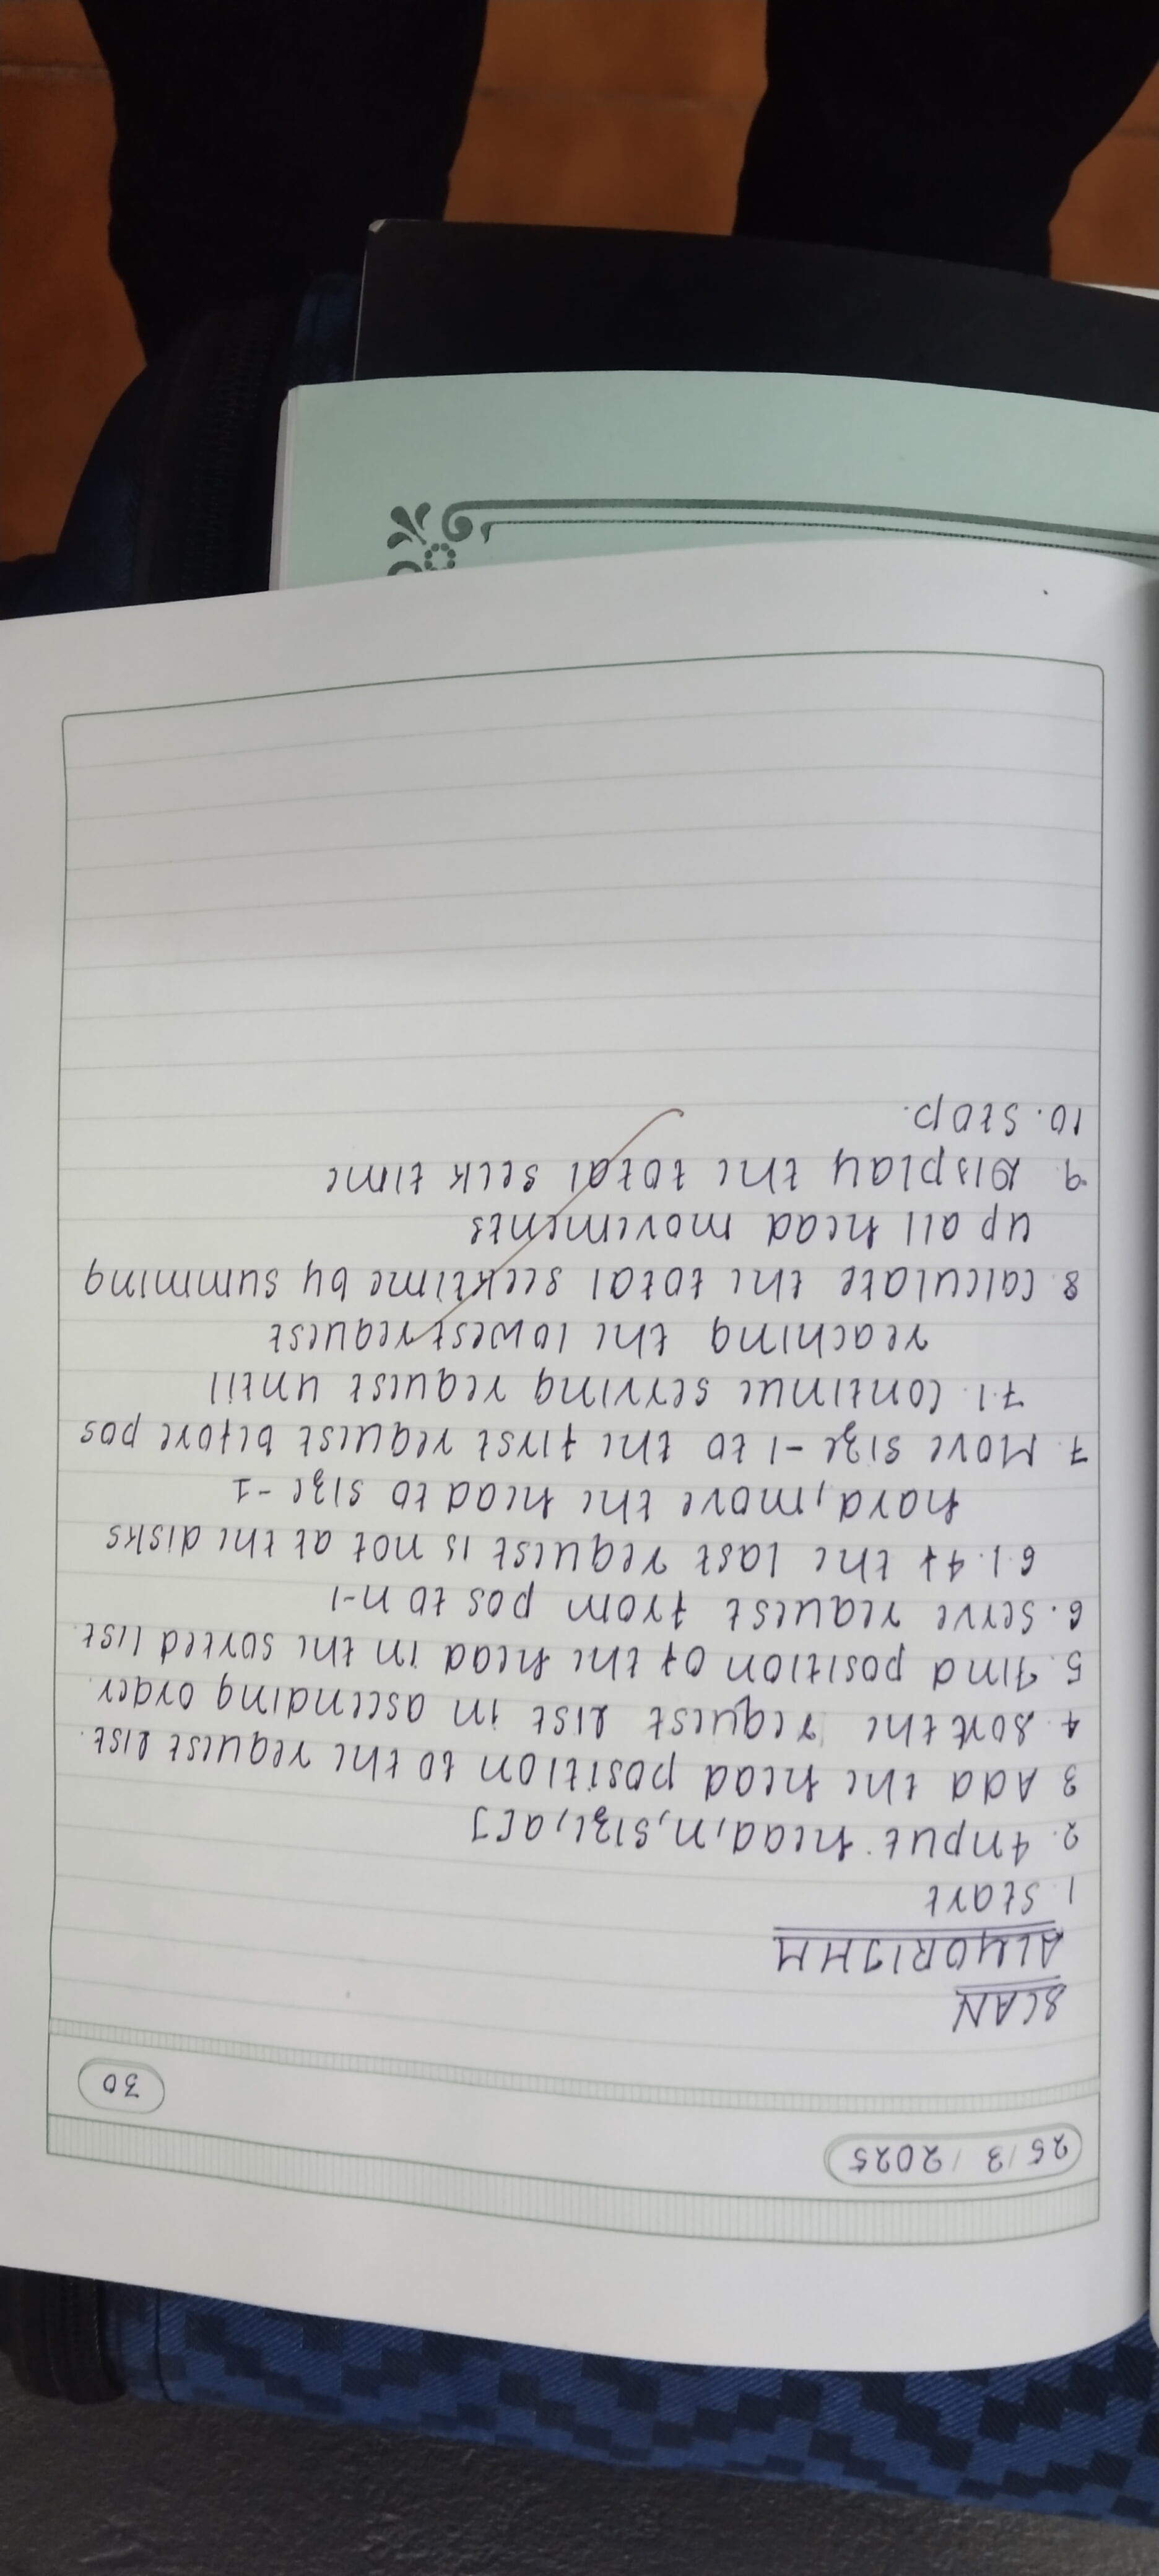 25/3/2025
30
SCAN
ALGORITHM
1. Start
2. Input head, n, size, a[]
3 Add the head position to the request list.
4. Sort the request list in ascending order.
5. Find position of the head in the sorted list.
6. Serve request from pos to n-1
6.1. If the last request is not at the disks
hard, move the head to size -1
7. Move size -1 to the first request before pos
7.1. Continue serving request until
reaching the lowest request
8. Calculate the total seek time by summing
up all head movements
9. Display the total seek time
10. Stop.